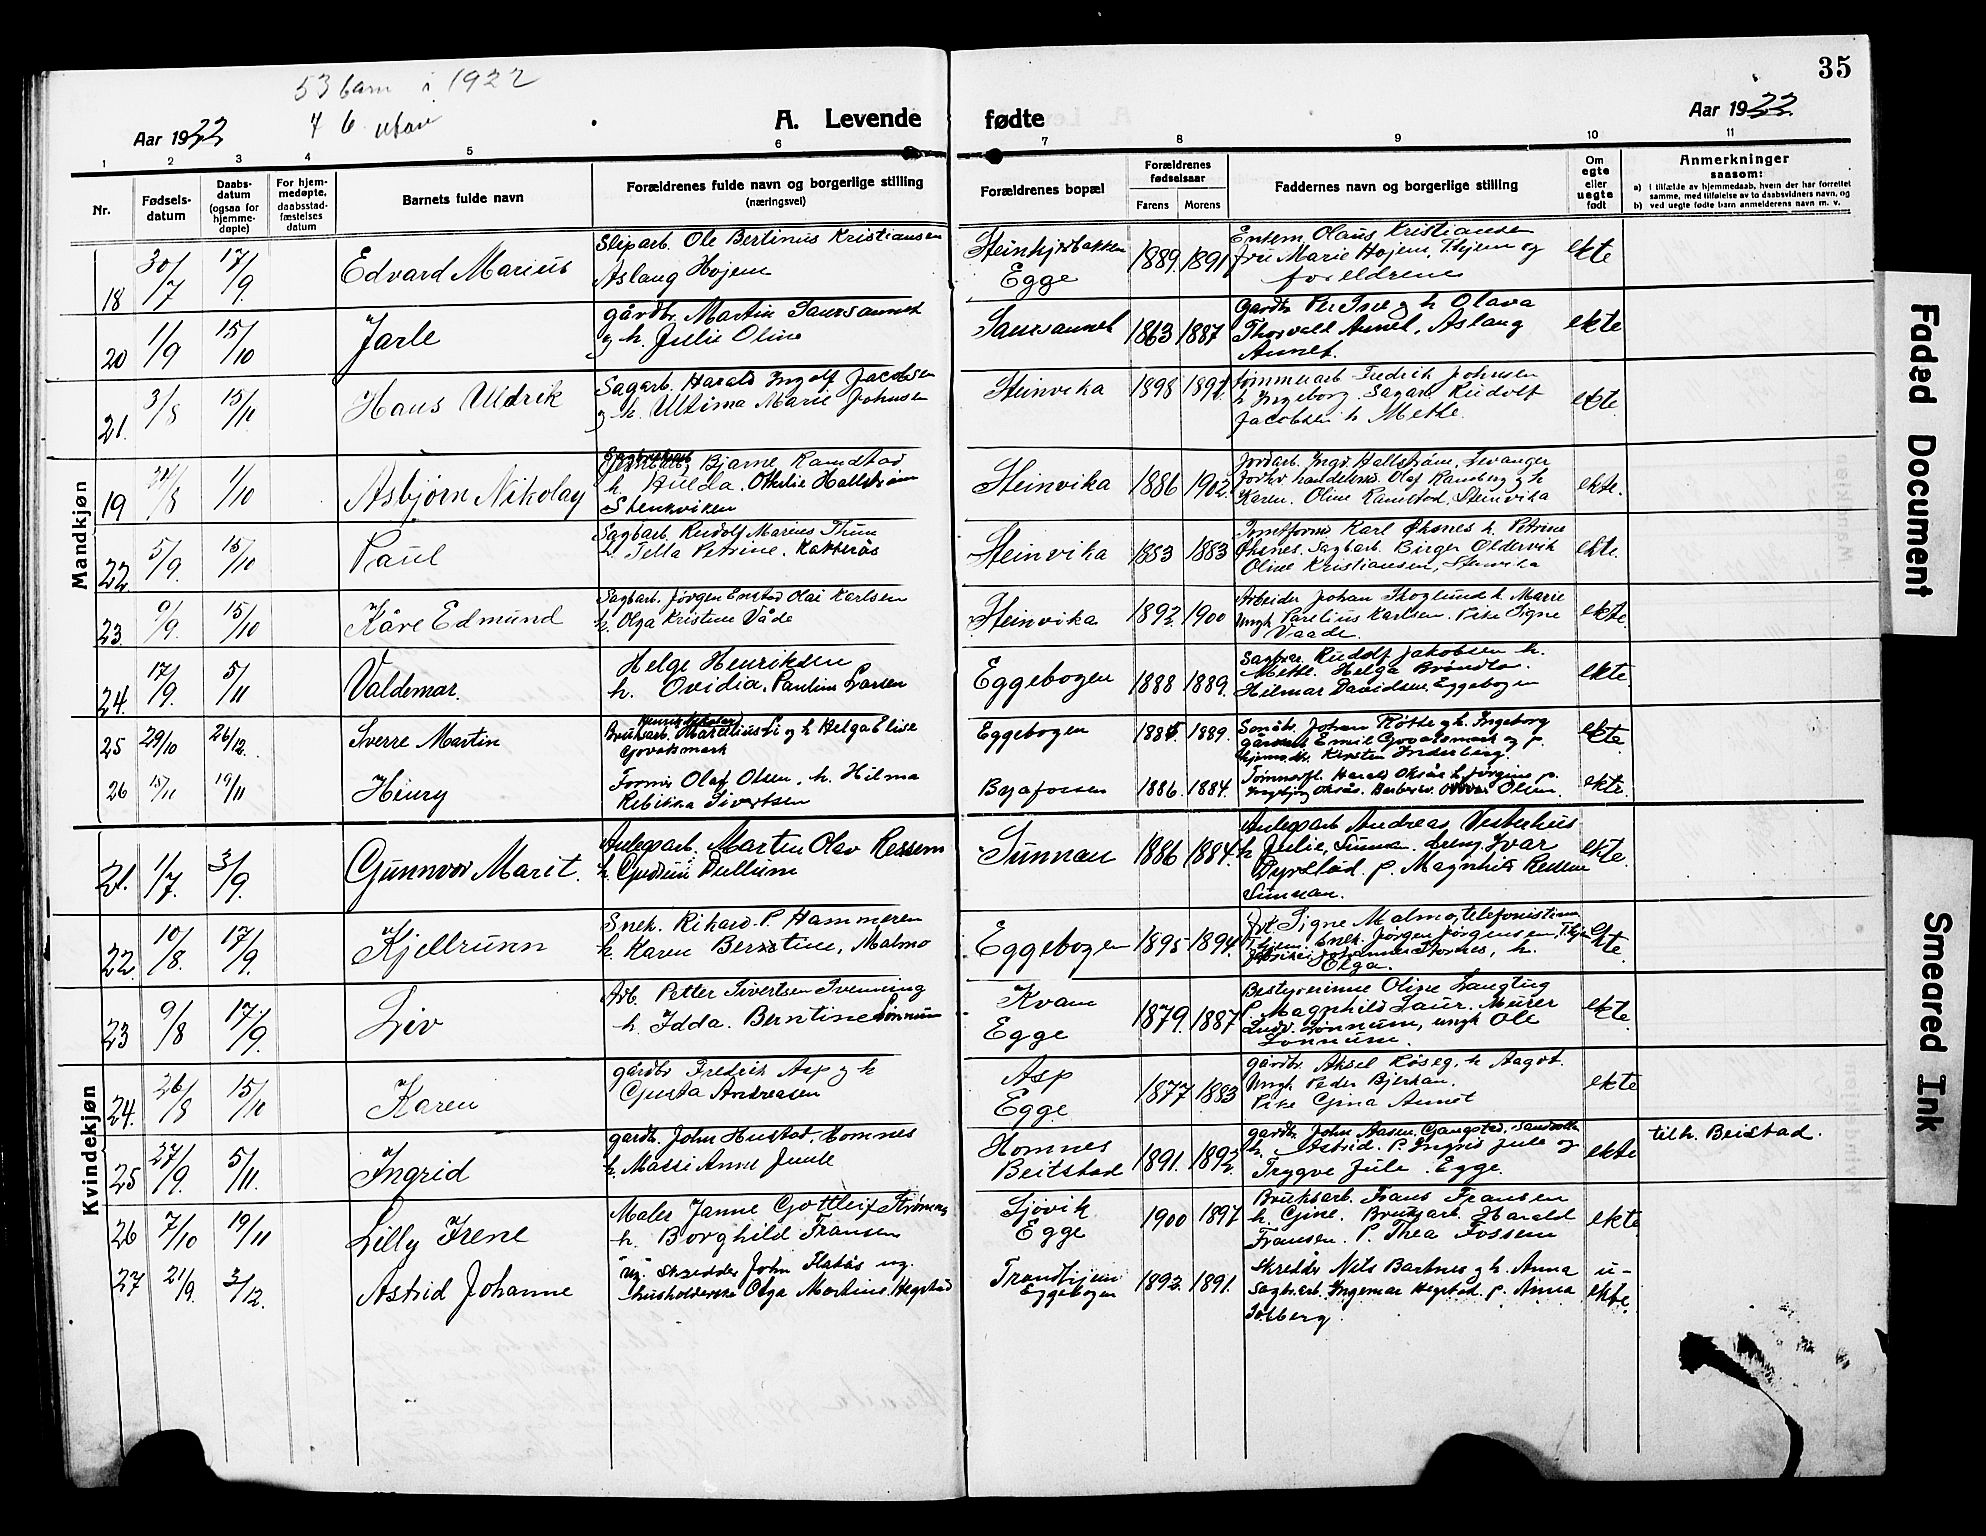 35
53 barn i 1922
Aar 1922
A. Levende fødte
Aar 1922.
1 2 3 4 5 6 7 8 9 10 11
Nr.
Fødsels-
datum
Daabs-
datum
(ogsaa for
hjemme-
døpte)
For hjem-
medøpte,
daabsstad-
fæstelses
datum
Barnets fulde navn
Forældrenes fulde navn og borgerlige stilling
(næringsvei)
Forældrenes bopæl
Forældrenes
fødselsaar
Farens Morens
Faddernes navn og borgerlige stilling
Om
egte
eller
uegte
født
Anmerkninger
saasom:
a) i tilfælde av hjemmedaab, hvem der har forrettet
samme, med tilføielse av to daabsvidners navn, og
b) ved uegte fødte barn anmelderens navn m. v.
Mandkjøn
18 30/7 17/9 Edvard Marius
Sliparb. Ole Bertinus Kristiansen
Aslaug Hojem
Steinkjerbakken
Egge
1889. 1891
Olaus Kristiansen
Marie Hojem, Thjem og
foreldrene
ekte
20 1/9 15/10 Jarle
gårdbr. Martin Saursaunet
og h. Julie Oline
Saursaunet 1863 1887
Gardb. Per og h Olava
Thorvald Aunet, Aslaug
Aunet.
ekte
21. 3/8 15/10 Hans Uldrik
Sagarb. Harald Ingolf Jacobsen
og h. Ultima Marie Johnsen
Steinvika 1898
tømmerarb Fredrik Johnsen
h Ingeborg. Sagarb Rudolf
Jacobsen h Mette.
ekte
19 1/10 Asbjørn Nikolay
Bjarne Ramstad
h. Hulda. Othelie Hallstrøm
Stenkviken
Steinvika 1886 1902.
Jordarb. Ingv. Hallstrøm, Levanger
Olaf Ramberg og h
Karen. Oline Ramstad, Steinvika
ekte.
22. 5/9. 15/10 Paul
Sagbarb. Rudolf Marius Thun
h. Tella Petrine.
Steinvika 1883
Karl Øksnes h. Petrine
Øksnes. Sagbarb. Birger Oldervik
Oline Kristiansen, Stenvika
ekte.
23. 15/10 Kåre Edmund
Sagbarb. Jørgen Enstad Olai Karlsen
h. Olga Kristine Våde
Steinvika 1892. 1900
Arbeider Johan Skoglund h. Marie
Ungk. Parelius Karlsen. Pike Signe
Vaade.
ekte.
24. 17/9. 5/11 Valdemar.
Helge Henriksen
h. Ovidia. Pauline Larsen
Eggebogen 1888 1889.
Rudolf Jakobsen h.
Mette. Helga
Hilmar Davidsen, Eggebogen
ekte.
25 29/10 26/12. Sverre Martin
Henrik Nikolai
Bruksarb. Marelius Li og h Helga Elise
Govatsmark
Eggebogen 1889.
Johan Røtte og h. Ingeborg
Emil Govatsmark og p.
Kirsten Inderberg.
ekte.
26 15/11 19/11 Henry
Former Olaf Olsen. h. Hilma
Rebekka Sivertsen
Byafossen 1886. 1884.
Harald Oksås h. Jørgine p.
Ingebjørg Oksås. Olsen.
ekte.
Kvindekjøn
21. 1/7. 3/9. Gunnvor Marit.
Anlegsarb. Marten Olav Ressem
h. Gudrun Dullum
Sunnan 1886 1884.
Anlegsarb Andreas Vesterhus
h Julie, Sunna. Ivar
Dyrstad. p. Magnhild Ressem
Sunnan.
ekte.
22. 10/8. 17/9. Kjellrunn
Snek. Rikard. P. Hammeren
h. Karen Berntine, Malmo
Eggebogen 1895 1894.
Frk Signe Malmo, telefonistinne
Thjem. Snek. Jørgen Jørgensen, Thjem
Johannes Stornes, h.
Elga.
ekte.
23 9/8 17/9. Liv
Arb. Petter Sivertsen Svenning
h. Idda. Berntine Lønnum
Kvam
Egge
1879. 1887
Bestyrerinne Oline Langtug
p. Magnhild Saur. Murer
Ludv. Lønnum, ungk Ole
Lønnum.
ekte.
24. 26/8 15/10 Karen
gårdbr. Fredrik Asp og h
Gusta Andreasen
Asp
Egge.
1877 1883
gårdbr. Aksel Røseg, h Aagot.
Ungk Peder Bjerkan.
Pike Gina Aunet
ekte
25. 27/9. 5/11. Ingrid
gardbr. John Hustad, Homnes
h. Massi Anne Juule
Homnes
Beitstad
1891. 1892.
gardbr. John Aasen, Gangstad, Sandvollan
h. Astrid. P. Ingrid Jule og
Trygve Jule. Egge.
ekte
tilh. Beistad.
26 7/10 19/11 Lilly Irene
Maler Janne Gottleif Strømnes
h. Borghild Fransen
Sjøvik
Egge
1900 1897
Bruksarb. Frans Fransen
h. Gine. Bruksarb. Harald
Fransen. P. Thea Fossem
ekte
27 21/9. 3/12. Astrid Johanne
ug. skredder John Flatås ug.
husholderske Olga Martine Hegstad
Trondhjem
Eggebogen
1892. 1891.
Skredder Nils Bartnes og h. Anna
Sagbarb. Ingemar Hegstad. p. Anna
Solberg.
u-
ekte.
Faded Document
Smeared Ink